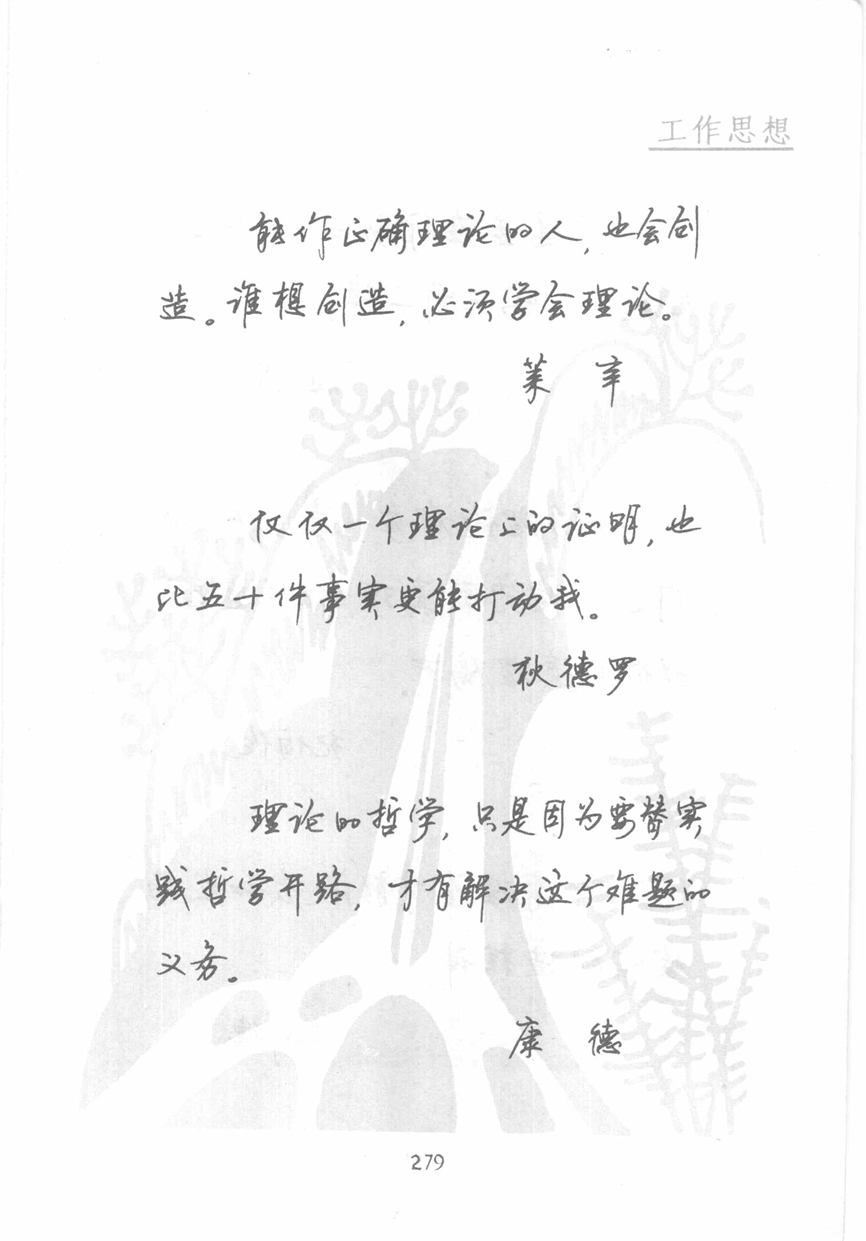 工作思想
能作正确理论的人，也会创
造。谁想创造，必须学会理论。
莱 辛
仅仅一个理论上的证明，也
比五十件事实更能打动我。
狄德罗
理论的哲学，只是因为要替实
践哲学开路，才有解决这个难题的
义务。
康 德
279